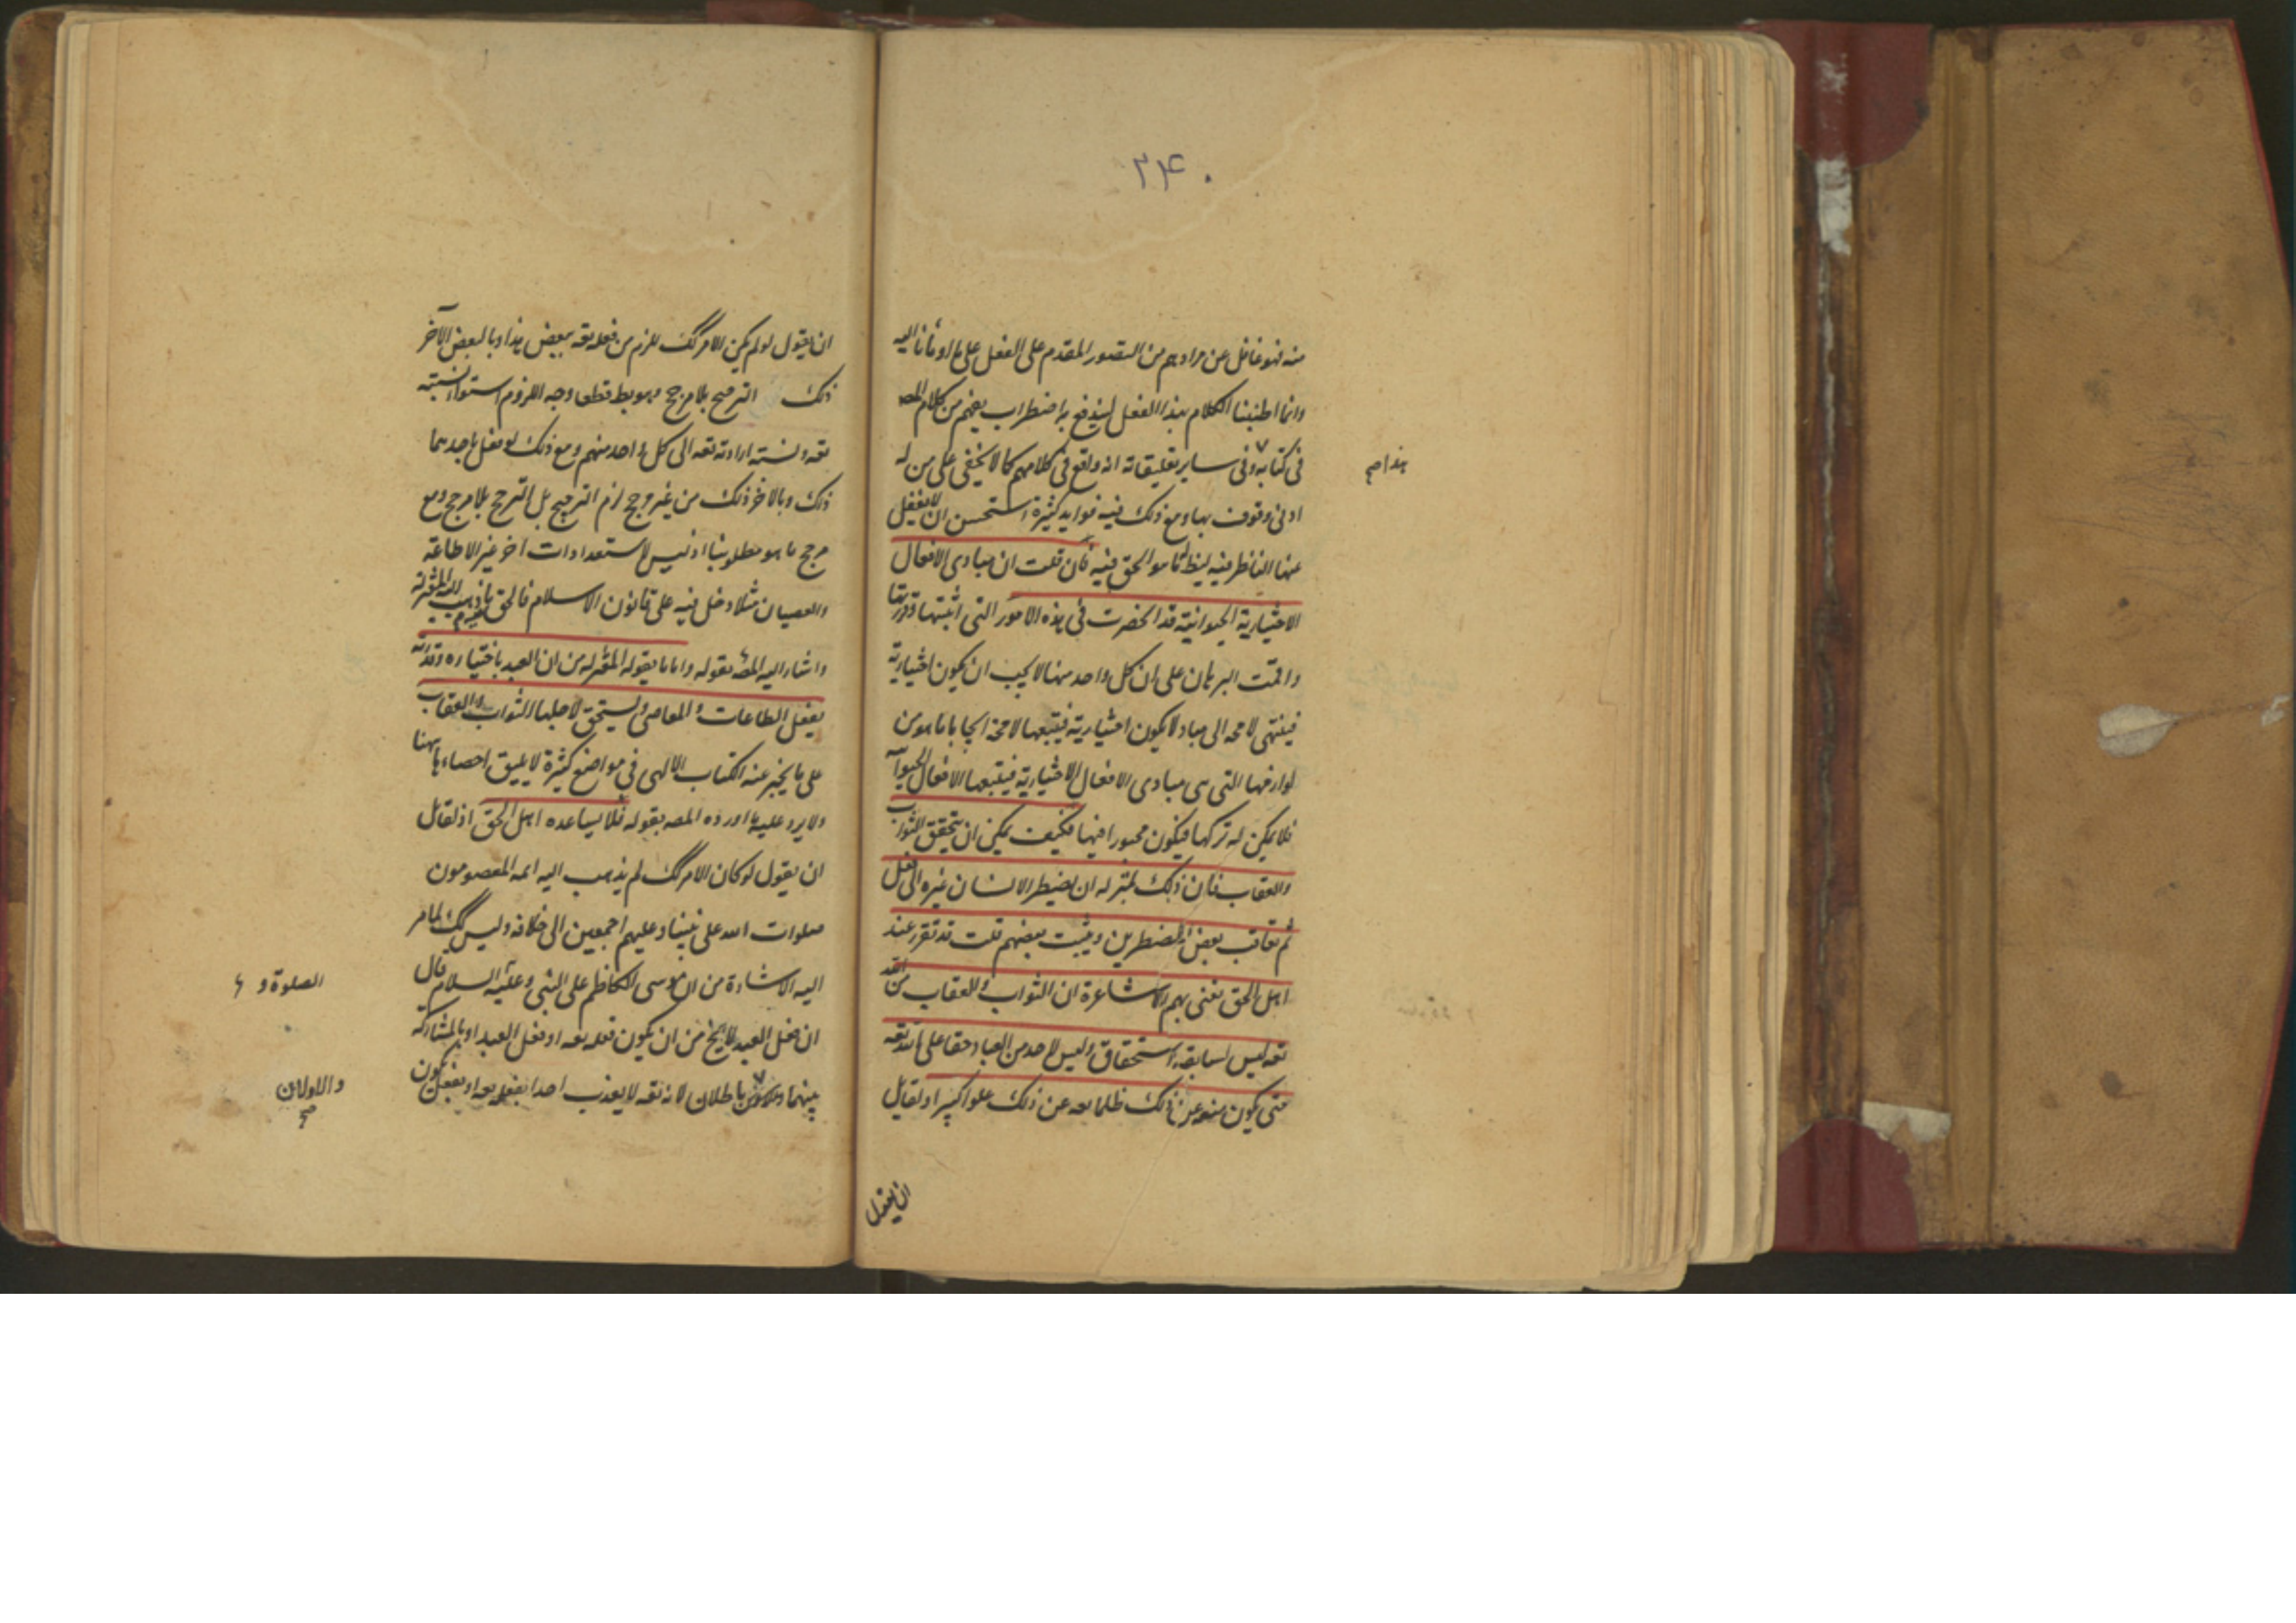 ۲۴۰
منه فهو غافل عن مرادهم من التصور المقدم على الفعل على ما اومأنا اليه
وانما اطنبنا الكلام بهذا الفعل ليندفع به اضطراب يفهم من كلام المصه
فى كتابه وفى ساير تعليقاته انه واقع فى كلامهم كما لا يخفى على من له
هذا صح
ادنى وقوف بها ومع ذلك فيه فوايد كثيرة استحسن ان لا يغفل
عنها الناظر فيه ليظ ما هو الحق فيه فان قلت ان مبادى الافعال
الاختيارية الحيوانية قد انحصرت فى هذه الامور التى اثبتها
واقمت البرهان على ان كل واحد منها لا يجب ان يكون اختيارية
فينتهى لا محه الى مباد لا يكون اختيارية فيتبعها لا محة ايجابا ما هو من
لوازمها التى هى مبادى الافعال الاختيارية فيتبعها الافعال
فلا يمكن له تركها فيكون مجبورا فيها فكيف يمكن ان يتحقق الثواب
والعقاب فان ذلك بمنزلة ان يضطر الانسان غيره الى فعل
ثم يعاقب بعض المضطرين ويثيب بعضهم قلت قد تقرر عند
اهل الحق نعنى بهم الاشاعرة ان الثواب والعقاب من الله
تعه ليس لسابقة استحقاق وليس لاحد من العباد حقا على الله تعه
حتى يكون منعه عن ذلك ظلما تعه عن ذلك علوا كبيرا ولقايل
ان يقول
ان يقول لو لم يكن الامر كك للزم من فعله تعه ببعض هذا وبالبعض الآخر
ذلك الترجيح بلا مرجح وهو بط قطعا وجه اللزوم استواء نسبته
تعه ونسبة ارادته تعه الى كل واحد منهم ومع ذلك لو فعل باحدهما
ذلك وبالاخر ذلك من غير مرجح لزم الترجيح بل الترجح بلا مرجح ومع
مرجح ما هو مطلوبنا اذ ليس لاستعدادات اخر غير الاطاعة
والعصيان مثلا دخل فيه على قانون الاسلام فالحق ما ذهب اليه المعتزلة
واشار اليه المصه بقوله واما ما يقوله المعتزله من ان العبد باختياره وقدرته
يفعل الطاعات والمعاصى ويستحق لاجلها الثواب والعقاب
على ما يخبر عنه الكتاب الالهى فى مواضع كثيرة لا يليق احصاءها ههنا
ولا يرد عليه ما اورده المصه بقوله فلا يساعده اهل الحق اذ لقايل
ان يقول لو كان الامر كك لم يذهب اليه ائمه المعصومون
صلوات الله على نبينا وعليهم اجمعين الى خلافه وليس كك لما مر
اليه الاشارة من ان موسى الكاظم على النبى وعليه السلام قال
الصلوة و
ان فعل العبد لا يخ من ان يكون فعله تعه او فعل العبد او بالمشاركة
بينهما باطلان لانه تعه لا يعذب احدا بفعله تعه او بفعل يكون
والاولان
صح